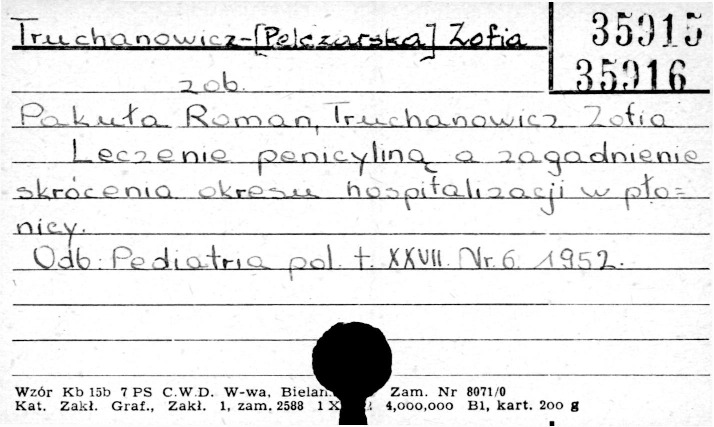 Truchanowicz-[Pelczarska] Zofia 35915
35916
zob.
Pakuła Roman, Truchanowicz Zofia
Leczenie penicyliną a zagadnienie
skrócenia okresu hospitalizacji w pło=
nicy.
Odb: Pediatria pol. t. XXVII. Nr. 6 1952.
Wzór Kb 15b 7 PS C.W.D. W-wa, Zam. Nr 8071/0
Kat. Zakł. Graf., Zakł. 1, zam. 2588 4,000,000 B1, kart. 200 g